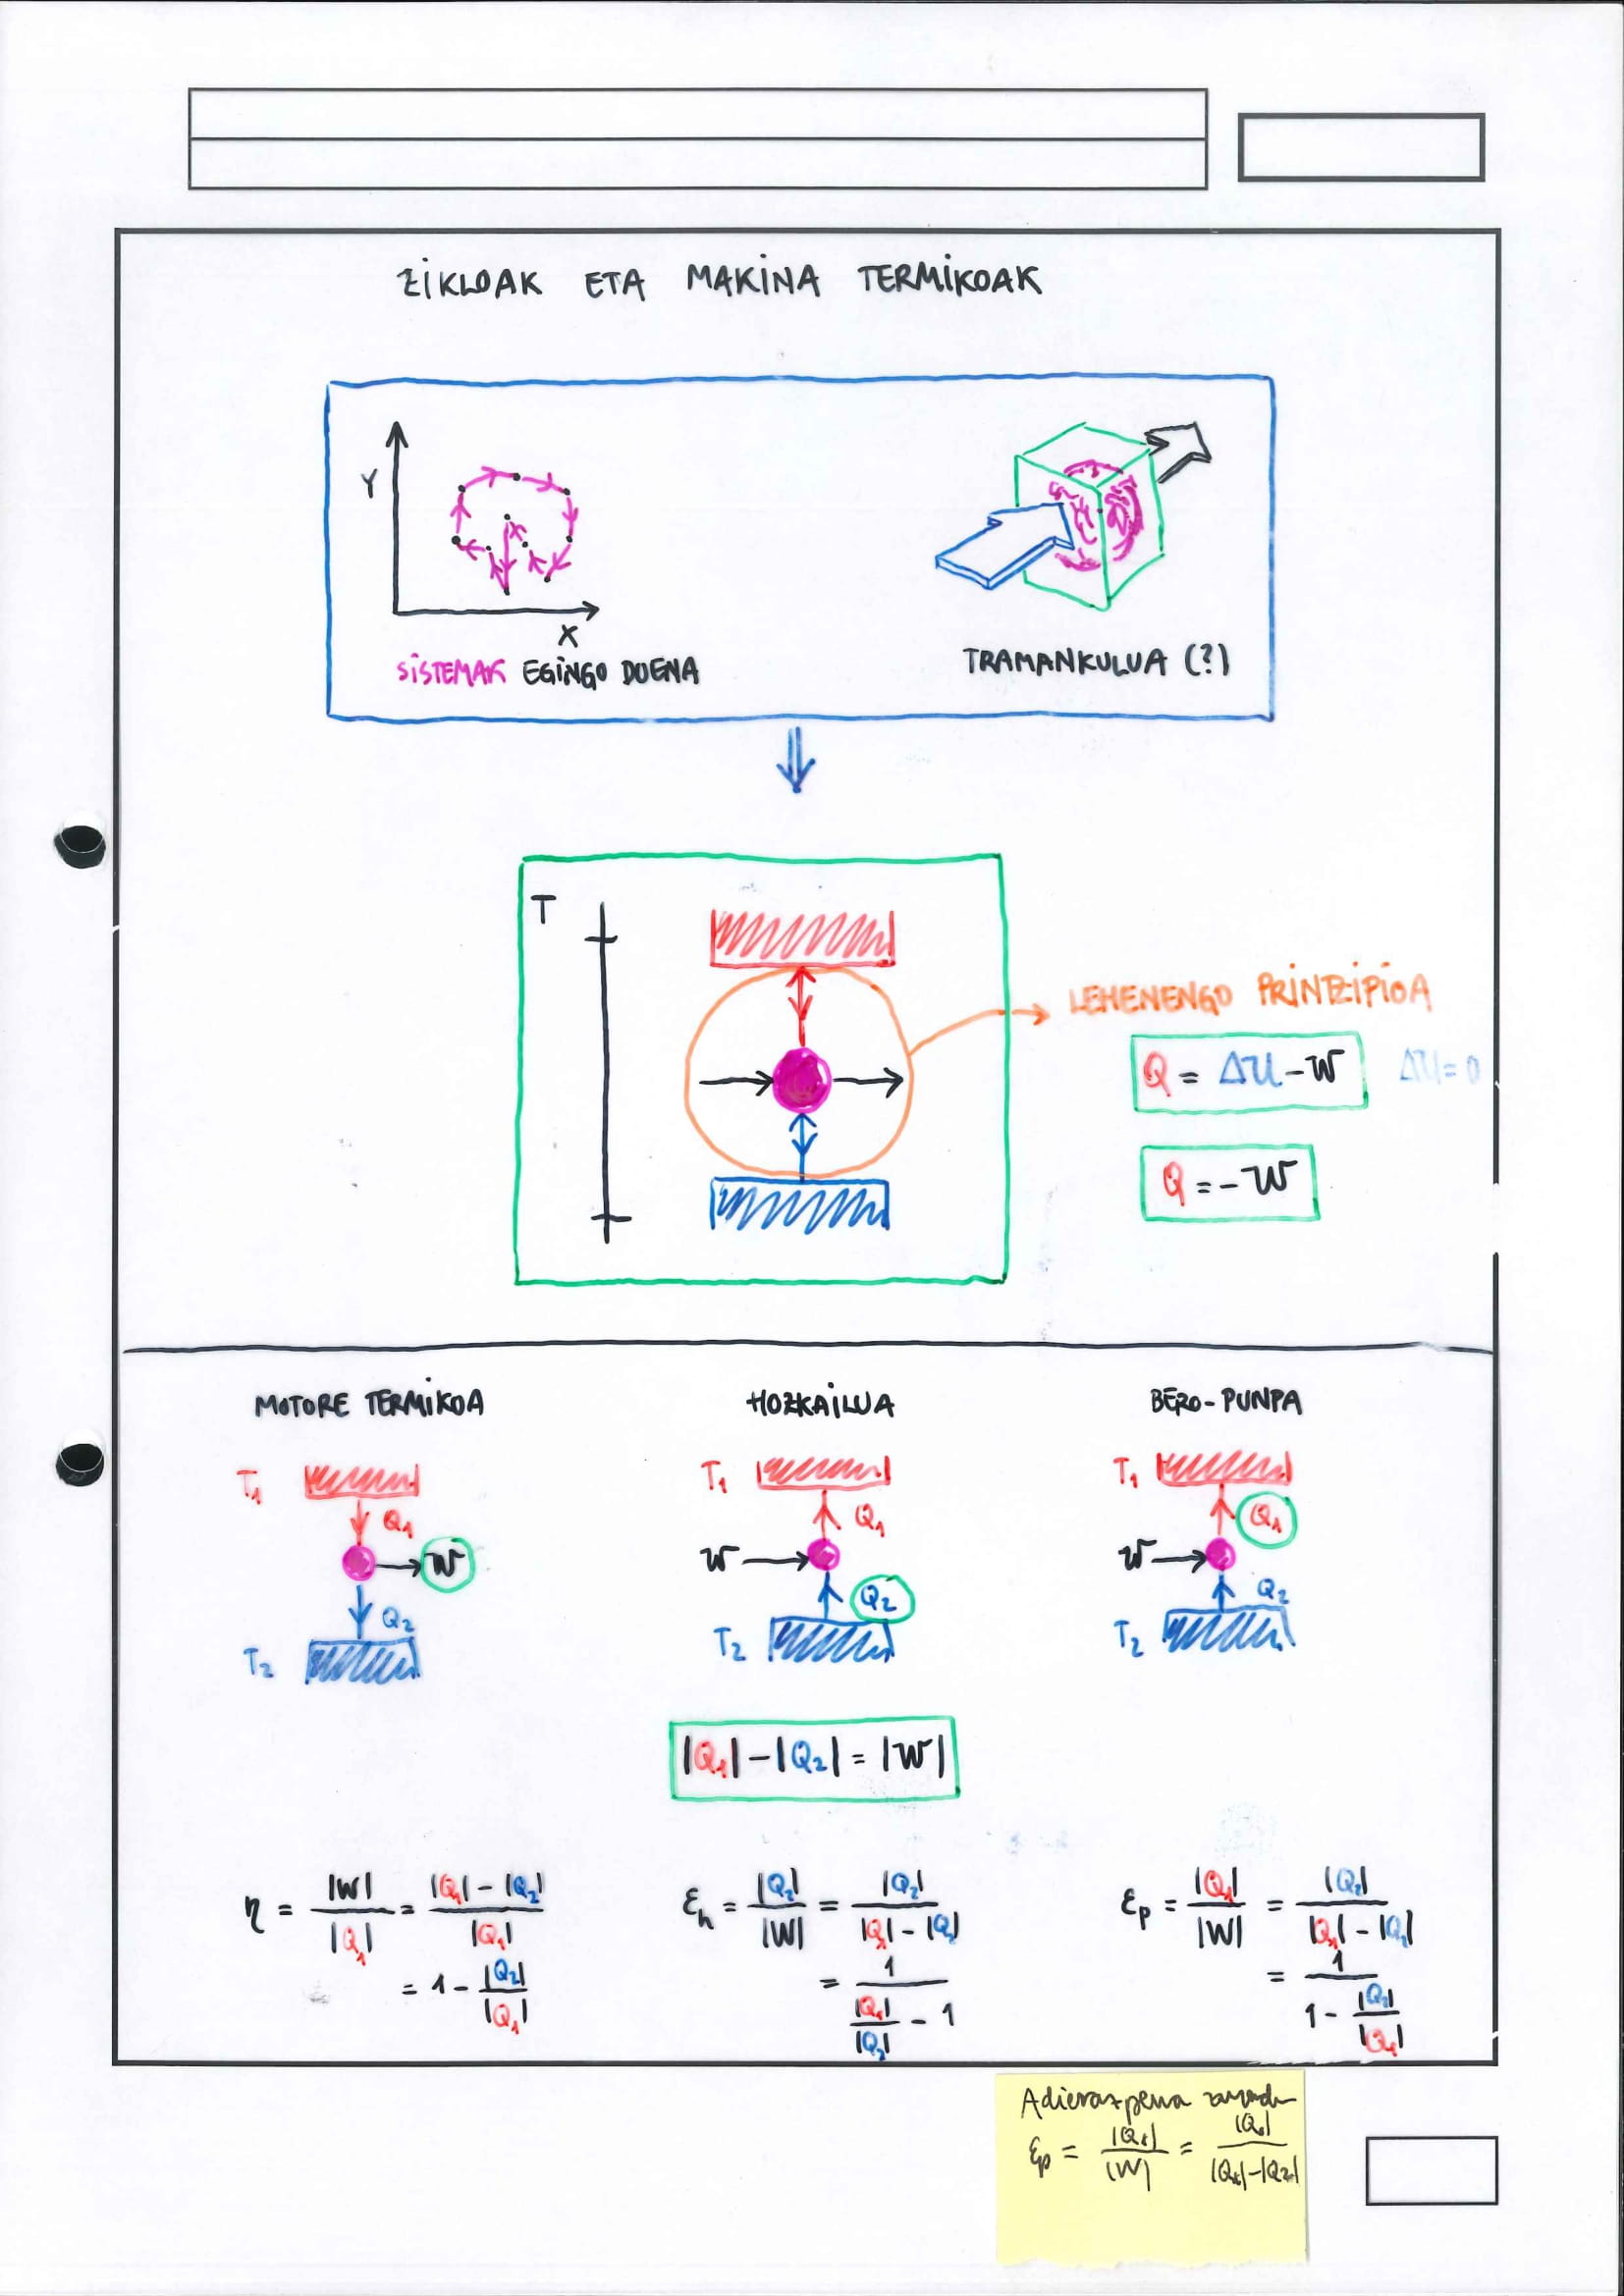 ZIKLOAK ETA MAKINA TERMIKOAK
Y
X
SISTEMAK EGINGO DUENA
TRAMANKULUA (?)
T
LEHENENGO PRINTZIPIOA
Q = ΔU - W ΔU = 0
Q = - W
MOTORE TERMIKOA
T₁
Q₁
W
Q₂
T₂
HOZKAILUA
T₁
Q₁
W
Q₂
T₂
BERO-PUNPA
T₁
Q₁
W
Q₂
T₂
|Q₁| - |Q₂| = |W|
η = |W| / |Q₁| = (|Q₁| - |Q₂|) / |Q₁|
= 1 - |Q₂| / |Q₁|
εh = |Q₂| / |W| = |Q₂| / (|Q₁| - |Q₂|)
= 1 / (|Q₁| / |Q₂| - 1)
εp = |Q₁| / |W| = |Q₂| / (|Q₁| - |Q₂|)
= 1 / (1 - |Q₂| / |Q₁|)
Adierazpena
εp = |Q₁| / |W| = |Q₁| / (|Q₁| - |Q₂|)